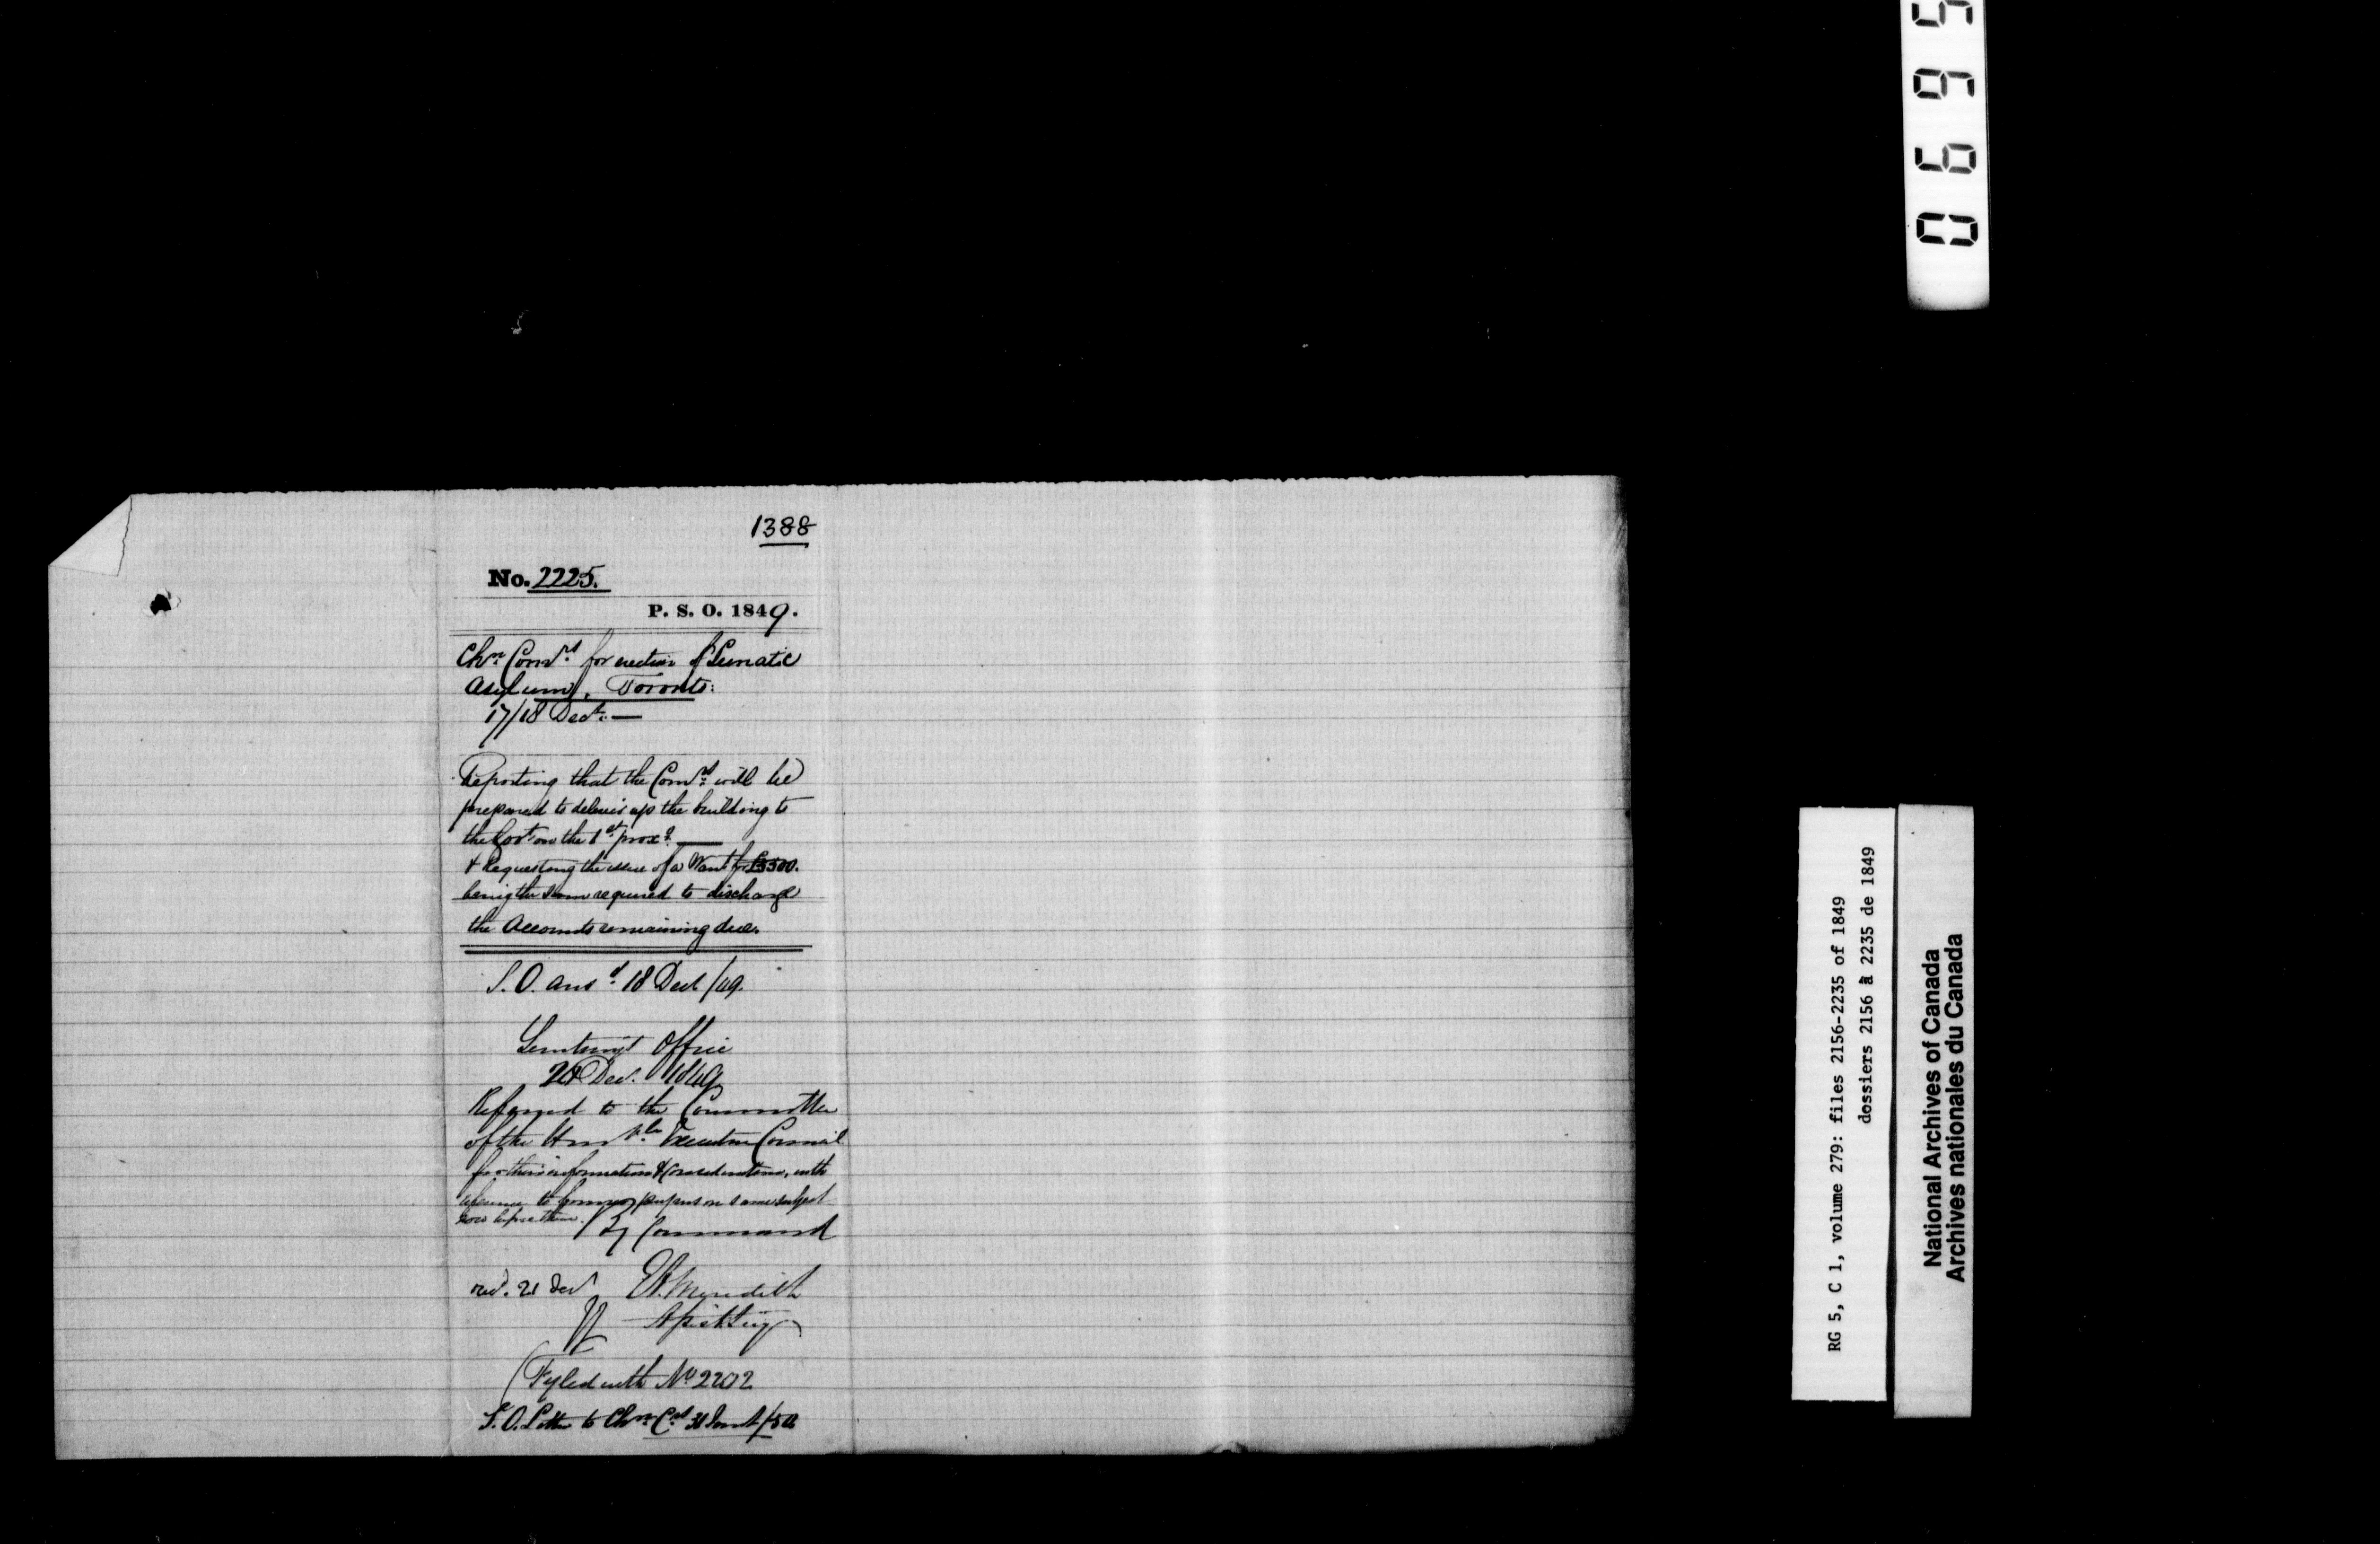 1388
No. 2225.
P. S. O. 1849.
Chn. Comrs. for erection of Lunatic
Asylum, Toronto:
17/18 Decr. —
Reporting that the Comrs. will be
prepared to deliver up the building to
the Govt. on the 1st proxo. —
& Requesting the issue of a Warrt for £3500.
being the sum required to discharge
the Accounts remaining due.
S. O. ansd. 18 Dect /49.
Secretary's Office
Dec. 1849
Referred to the Committee
of the Honble Executive Council
for their information & consideration, with
reference to former papers on same subject
now before them. By Command
recd. 21 Dec E A. Meredith
Asist Secy
(Fyled with No. 2202
S. O. Letter to Chn. Crs 31 Jan /50
0695
RG 5, C 1, volume 279: files 2156-2235 of 1849
dossiers 2156 à 2235 de 1849
National Archives of Canada
Archives nationales du Canada